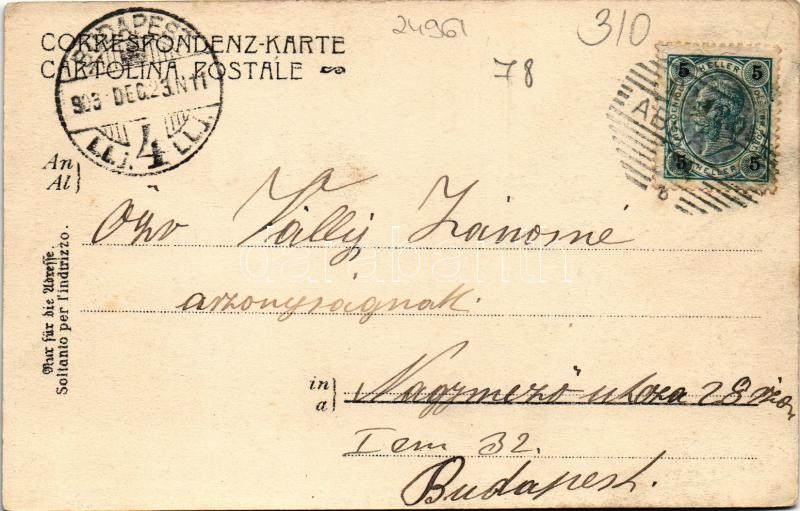 24961
310
78
CORRESPONDENZ-KARTE
CARTOLINA POSTALE
BUDAPEST
903 DEC. 23. N 11
4
5 HELLER 5
5 HELLER 5
An
Al
Özv Válly Jánosné
aszonyságnak.
in
a
Nagymező utcza 28
I em 32.
Budapest.
Nur für die Adresse.
Soltanto per l'indirizzo.
darabanth